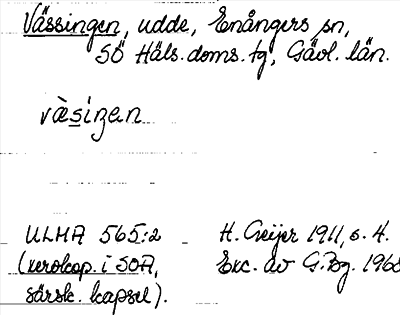 Vässingen, udde, Enångers sn,
SÖ Häls. doms. tg, Gävl. län.
vàsiŋen
ULMA 565:2 H. Geijer 1911, s. 4.
(xerokop. i SOA, Exc. av G.Bg. 1968
särsk. kapsel).